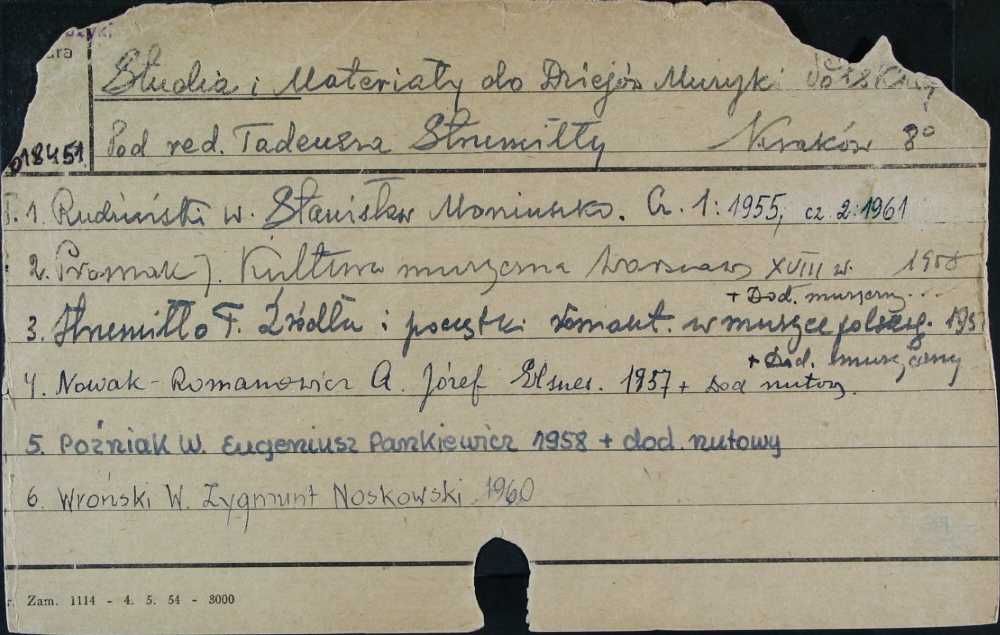 Studia i Materiały do Dziejów Muzyki Polskiej
018451 Pod red. Tadeusza Strumiłły Kraków 8°
T. 1. Rudziński W. Stanisław Moniuszko. Cz. 1: 1955, cz. 2: 1961
2. Prosnak J. Kultura muzyczna Warszawy XVIII w. 1955
+ Dod. muzyczny...
3. Strumiłło T. Źródła i początki romant. w muzyce polskiej. 195
+ Dod. muzyczny
4. Nowak-Romanowicz A. Józef Elsner. 1957 + Dod nutowy.
5. Poźniak W. Eugeniusz Pankiewicz 1958 + dod. nutowy
6. Wroński W. Zygmunt Noskowski. 1960
Zam. 1114 - 4. 5. 54 - 3000